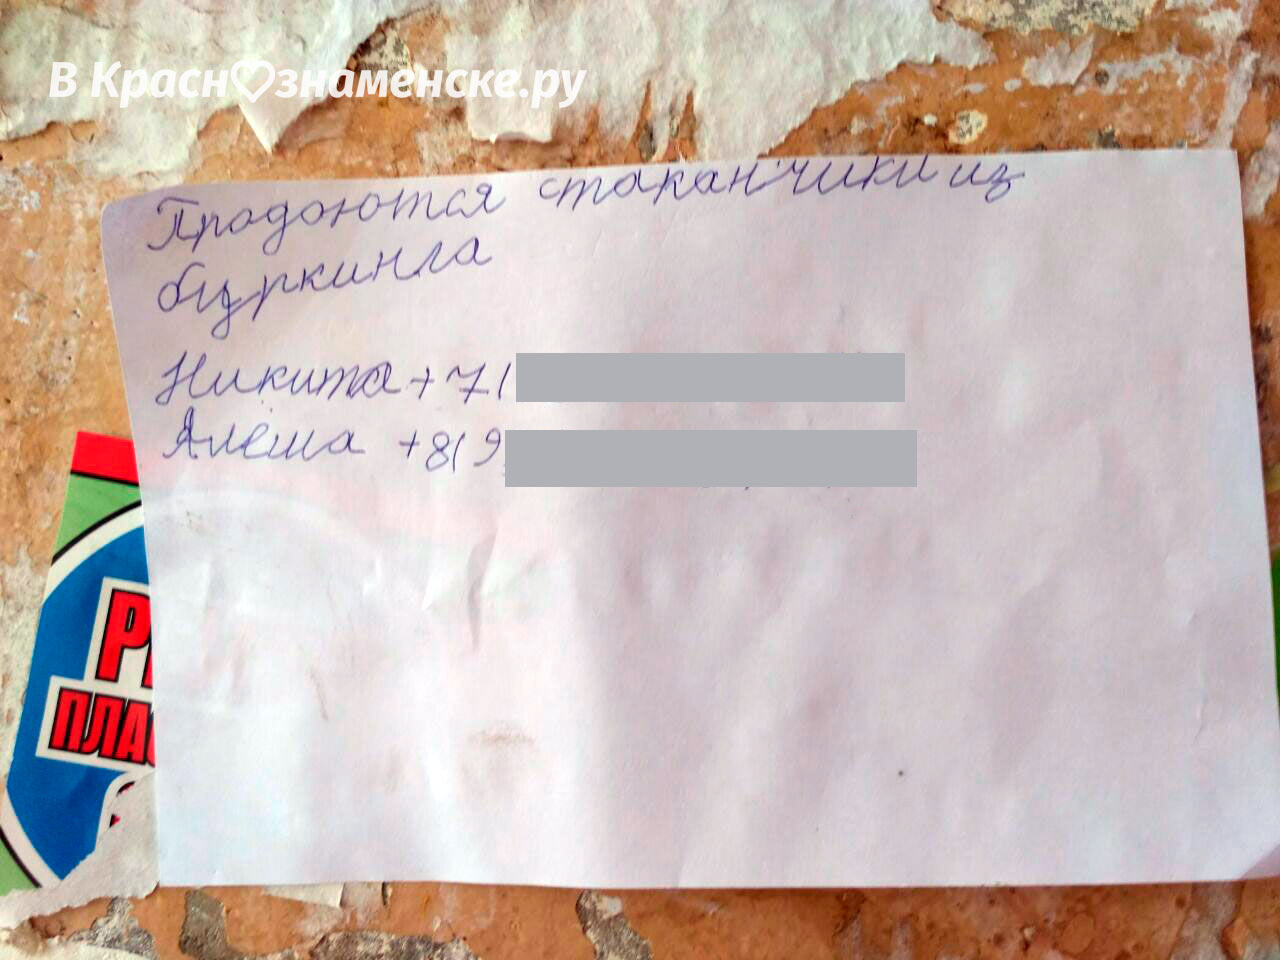 В Красн♡знаменске.ру
Продоются стаканчики из
буркинга
Никита +7(
Алёша +8(9
ПЛАС